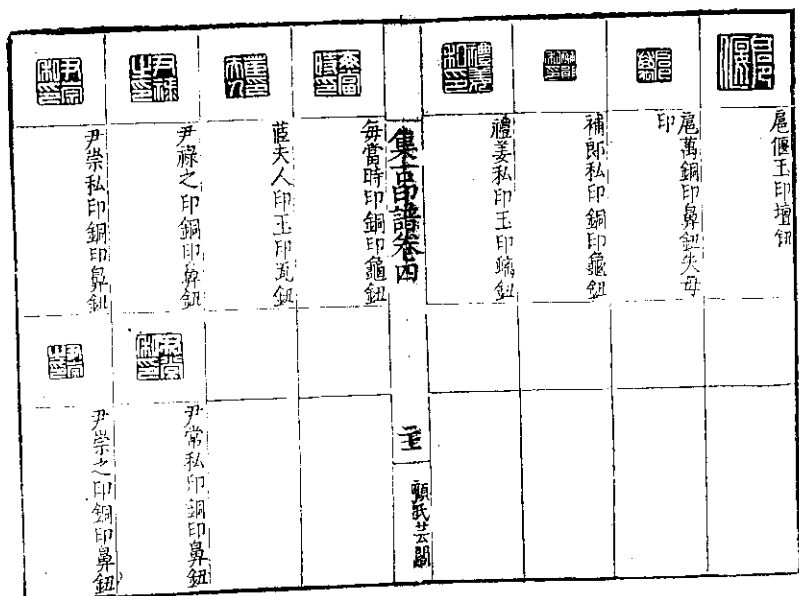 扈偃玉印壇鈕
扈萬銅印鼻鈕失母
印
補郎私印銅印龜鈕
禮姜私印玉印螭鈕
集古印譜卷四
顧氏芸閣
毎當時印銅印龜鈕
藍夫人印玉印瓦鈕
尹祿之印銅印鼻鈕
尹崇私印銅印鼻鈕
尹常私印銅印鼻鈕
尹崇之印銅印鼻鈕